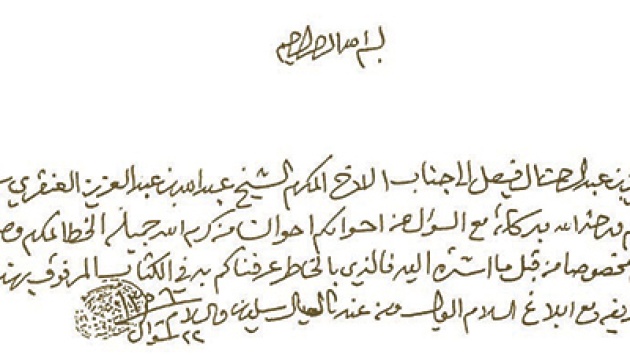 بسم الله الرحمن الرحيم
بن عبد الرحمن ال فيصل الى جناب الاخ المكرم الشيخ عبد الله بن عبد العزيز العنقري
ورحمة الله وبركاته مع السؤال عن احوالكم احوالنا من كرم الله جميله الخط المكرم
مخصوصا من قبل ما اشرة اليه فالذي بالخاطر عرفناكم به في الكتاب المرفوق
مع ابلاغ السلام العيال ومن عندنا العيال سالمين والسلام
٢٢ شوال